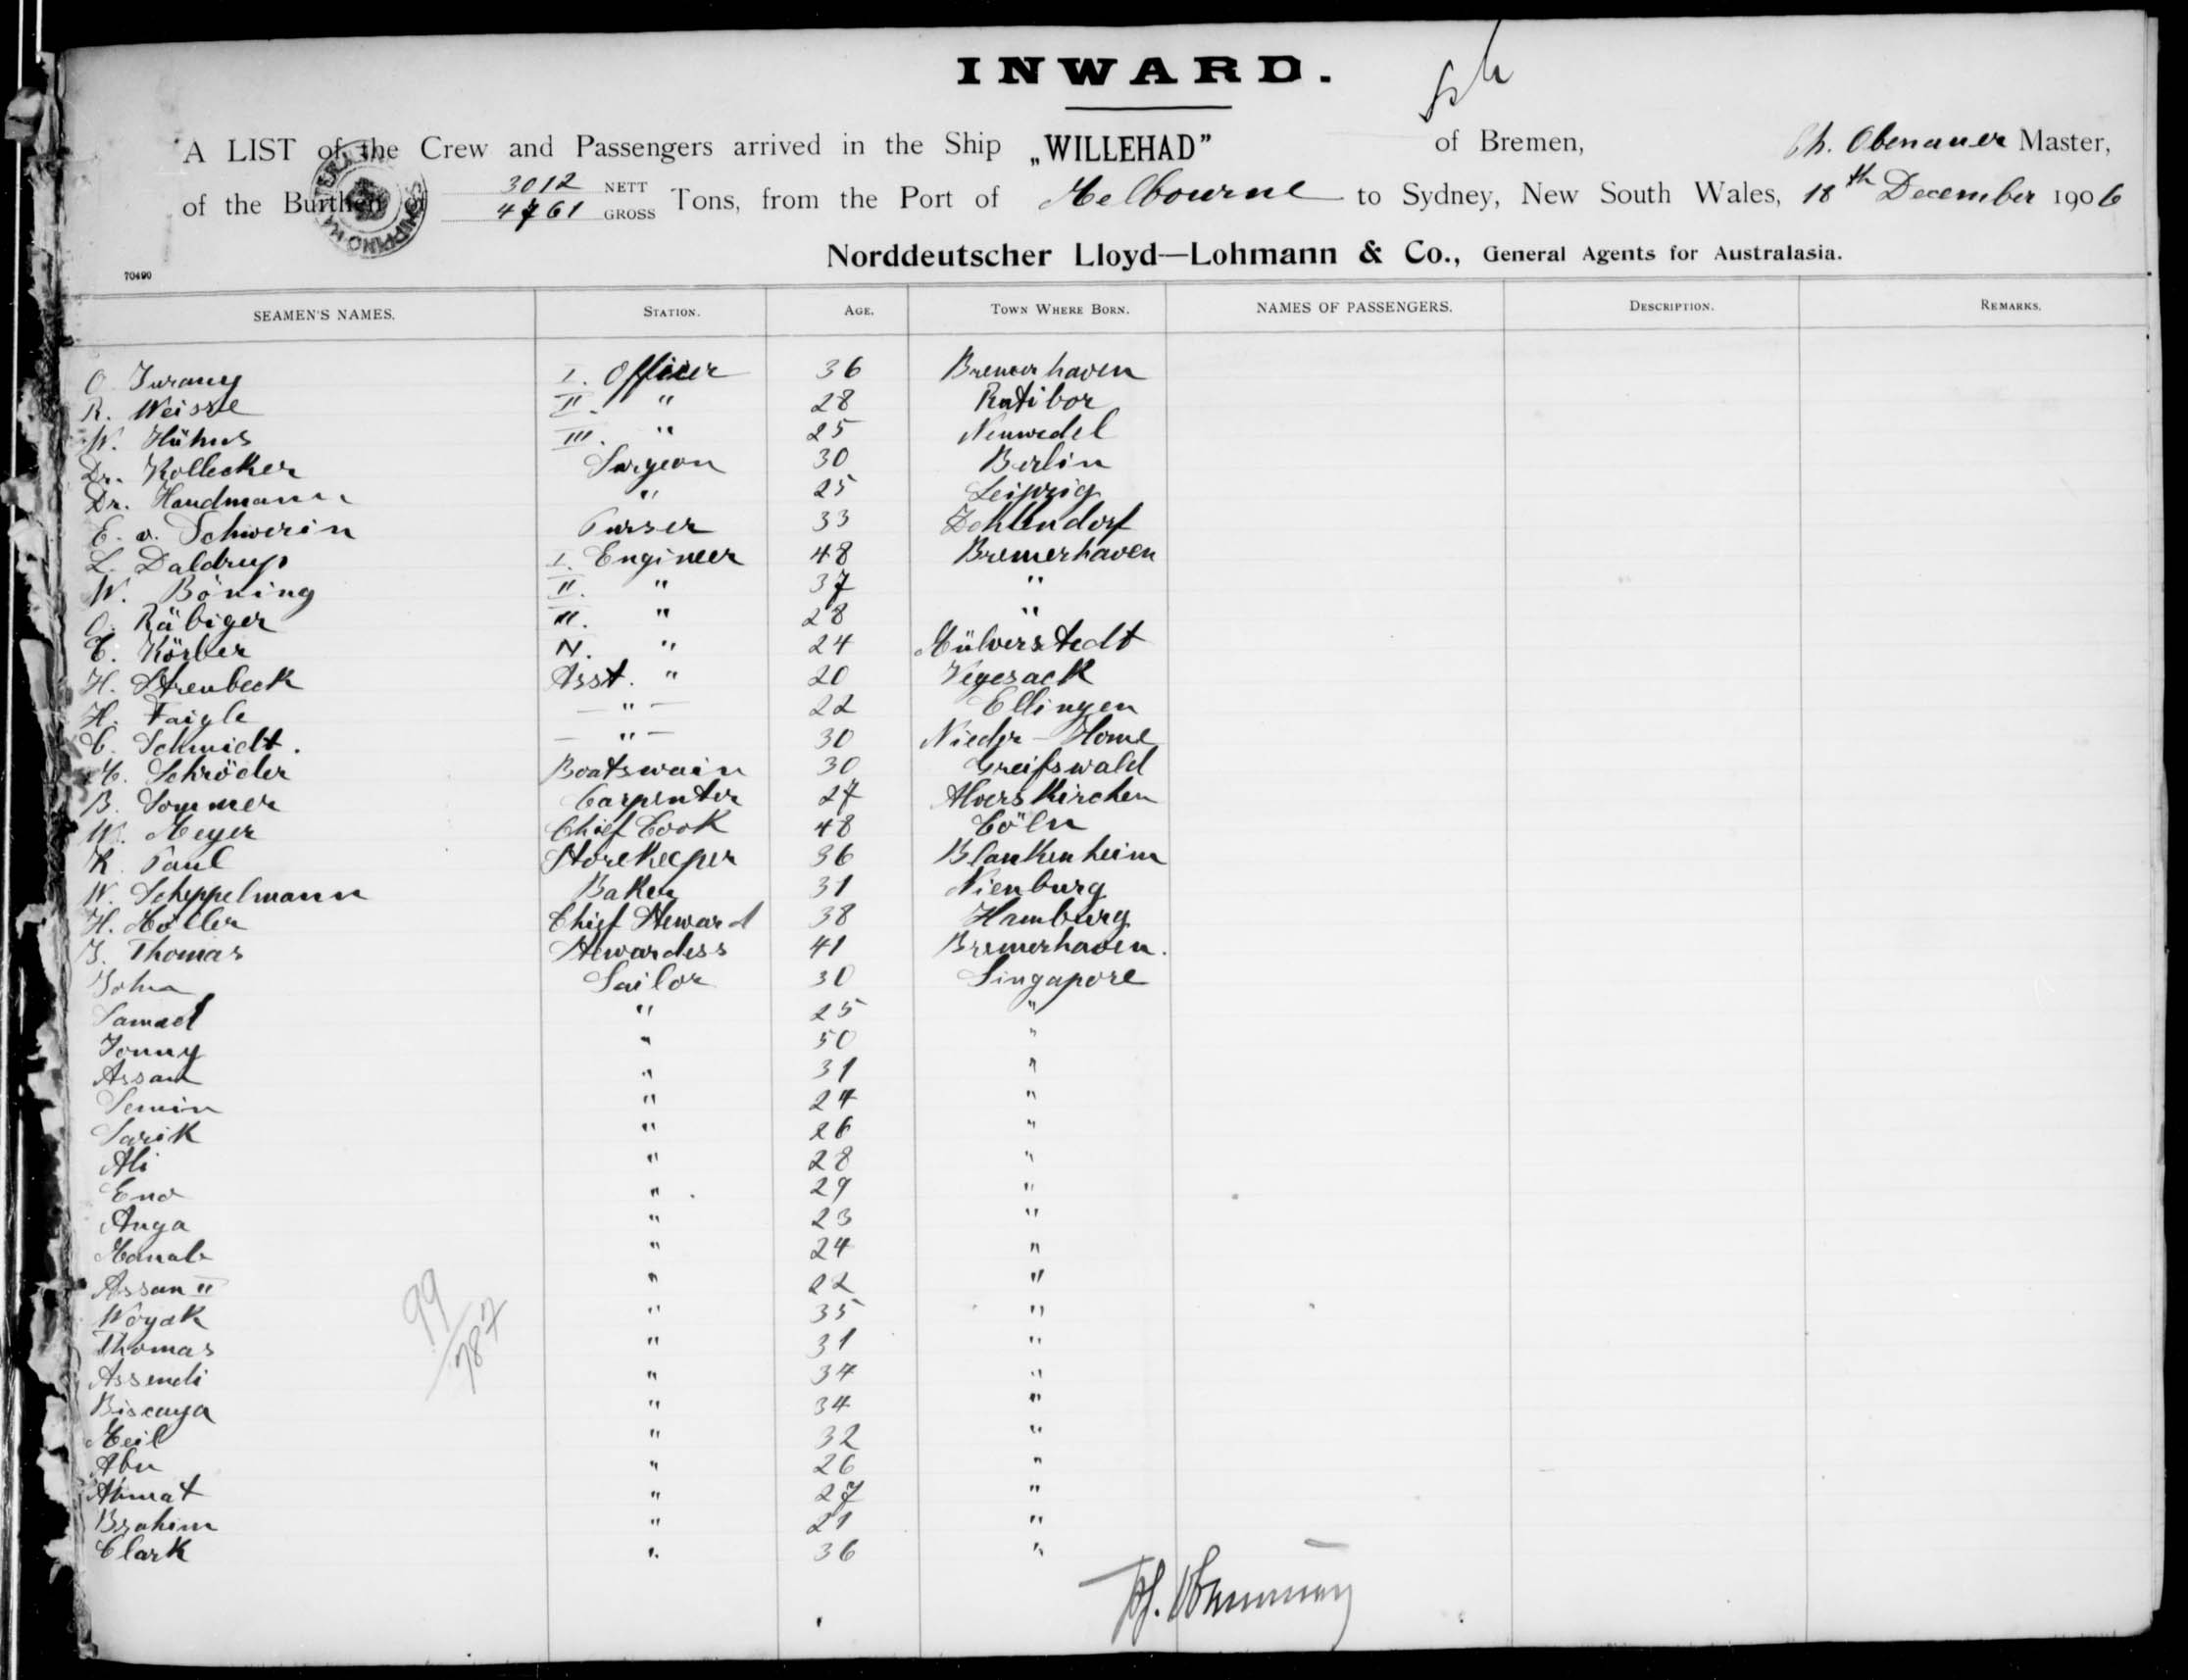 INWARD.
A LIST of the Crew and Passengers arrived in the Ship „WILLEHAD" of Bremen, Ph. Obenauer Master,
of the Burthen of 3012 NETT 4761 GROSS Tons, from the Port of Melbourne to Sydney, New South Wales, 18th December 1906
Norddeutscher Lloyd—Lohmann & Co., General Agents for Australasia.
70490
SEAMEN'S NAMES. STATION. AGE. TOWN WHERE BORN. NAMES OF PASSENGERS. DESCRIPTION. REMARKS.
O. I. Officer 36 Bremerhaven
R. Weisse II. " 28 Ratibor
W. Hühns III. " 25 Neuwedel
Dr. Kollecker Surgeon 30 Berlin
Dr. Handmann " 25 Leipzig
E. v. Schwerin Purser 33 Zehlendorf
L. Daldrup I. Engineer 48 Bremerhaven
W. Böning II. " 37 "
O. Räbiger III. " 28 "
C. Körber IV. " 24 Mülverstedt
H. Strenbeck Asst. " 20 Vegesack
H. Faigle — " — 22 Ellingen
C. Schmidt. — " — 30
M. Schröder Boatswain 30 Greifswald
B. Sommer Carpenter 27 Alverskirchen
W. Meyer Chief Cook 48 Cöln
K. Paul Storekeeper 36 Blankenheim
W. Scheppelmann Baker 31 Nienburg
H. Möller Chief Steward 38 Hamburg
J. Thomas Stewardess 41 Bremerhaven.
Sailor 30 Singapore
" 25 "
Jonny " 50 "
Assan " 31 "
Semin " 24 "
Sarik " 26 "
Ali " 28 "
Eno " 29 "
Anga " 23 "
" 24 "
Assan II " 22 "
Woyak " 35 "
Thomas " 31 "
Assendi " 34 "
Biscaya " 34 "
Meil " 32 "
Abu " 26 "
Ahmat " 27 "
Brahim " 21 "
Clark " 36 "
99/787
Ph. Obenauer